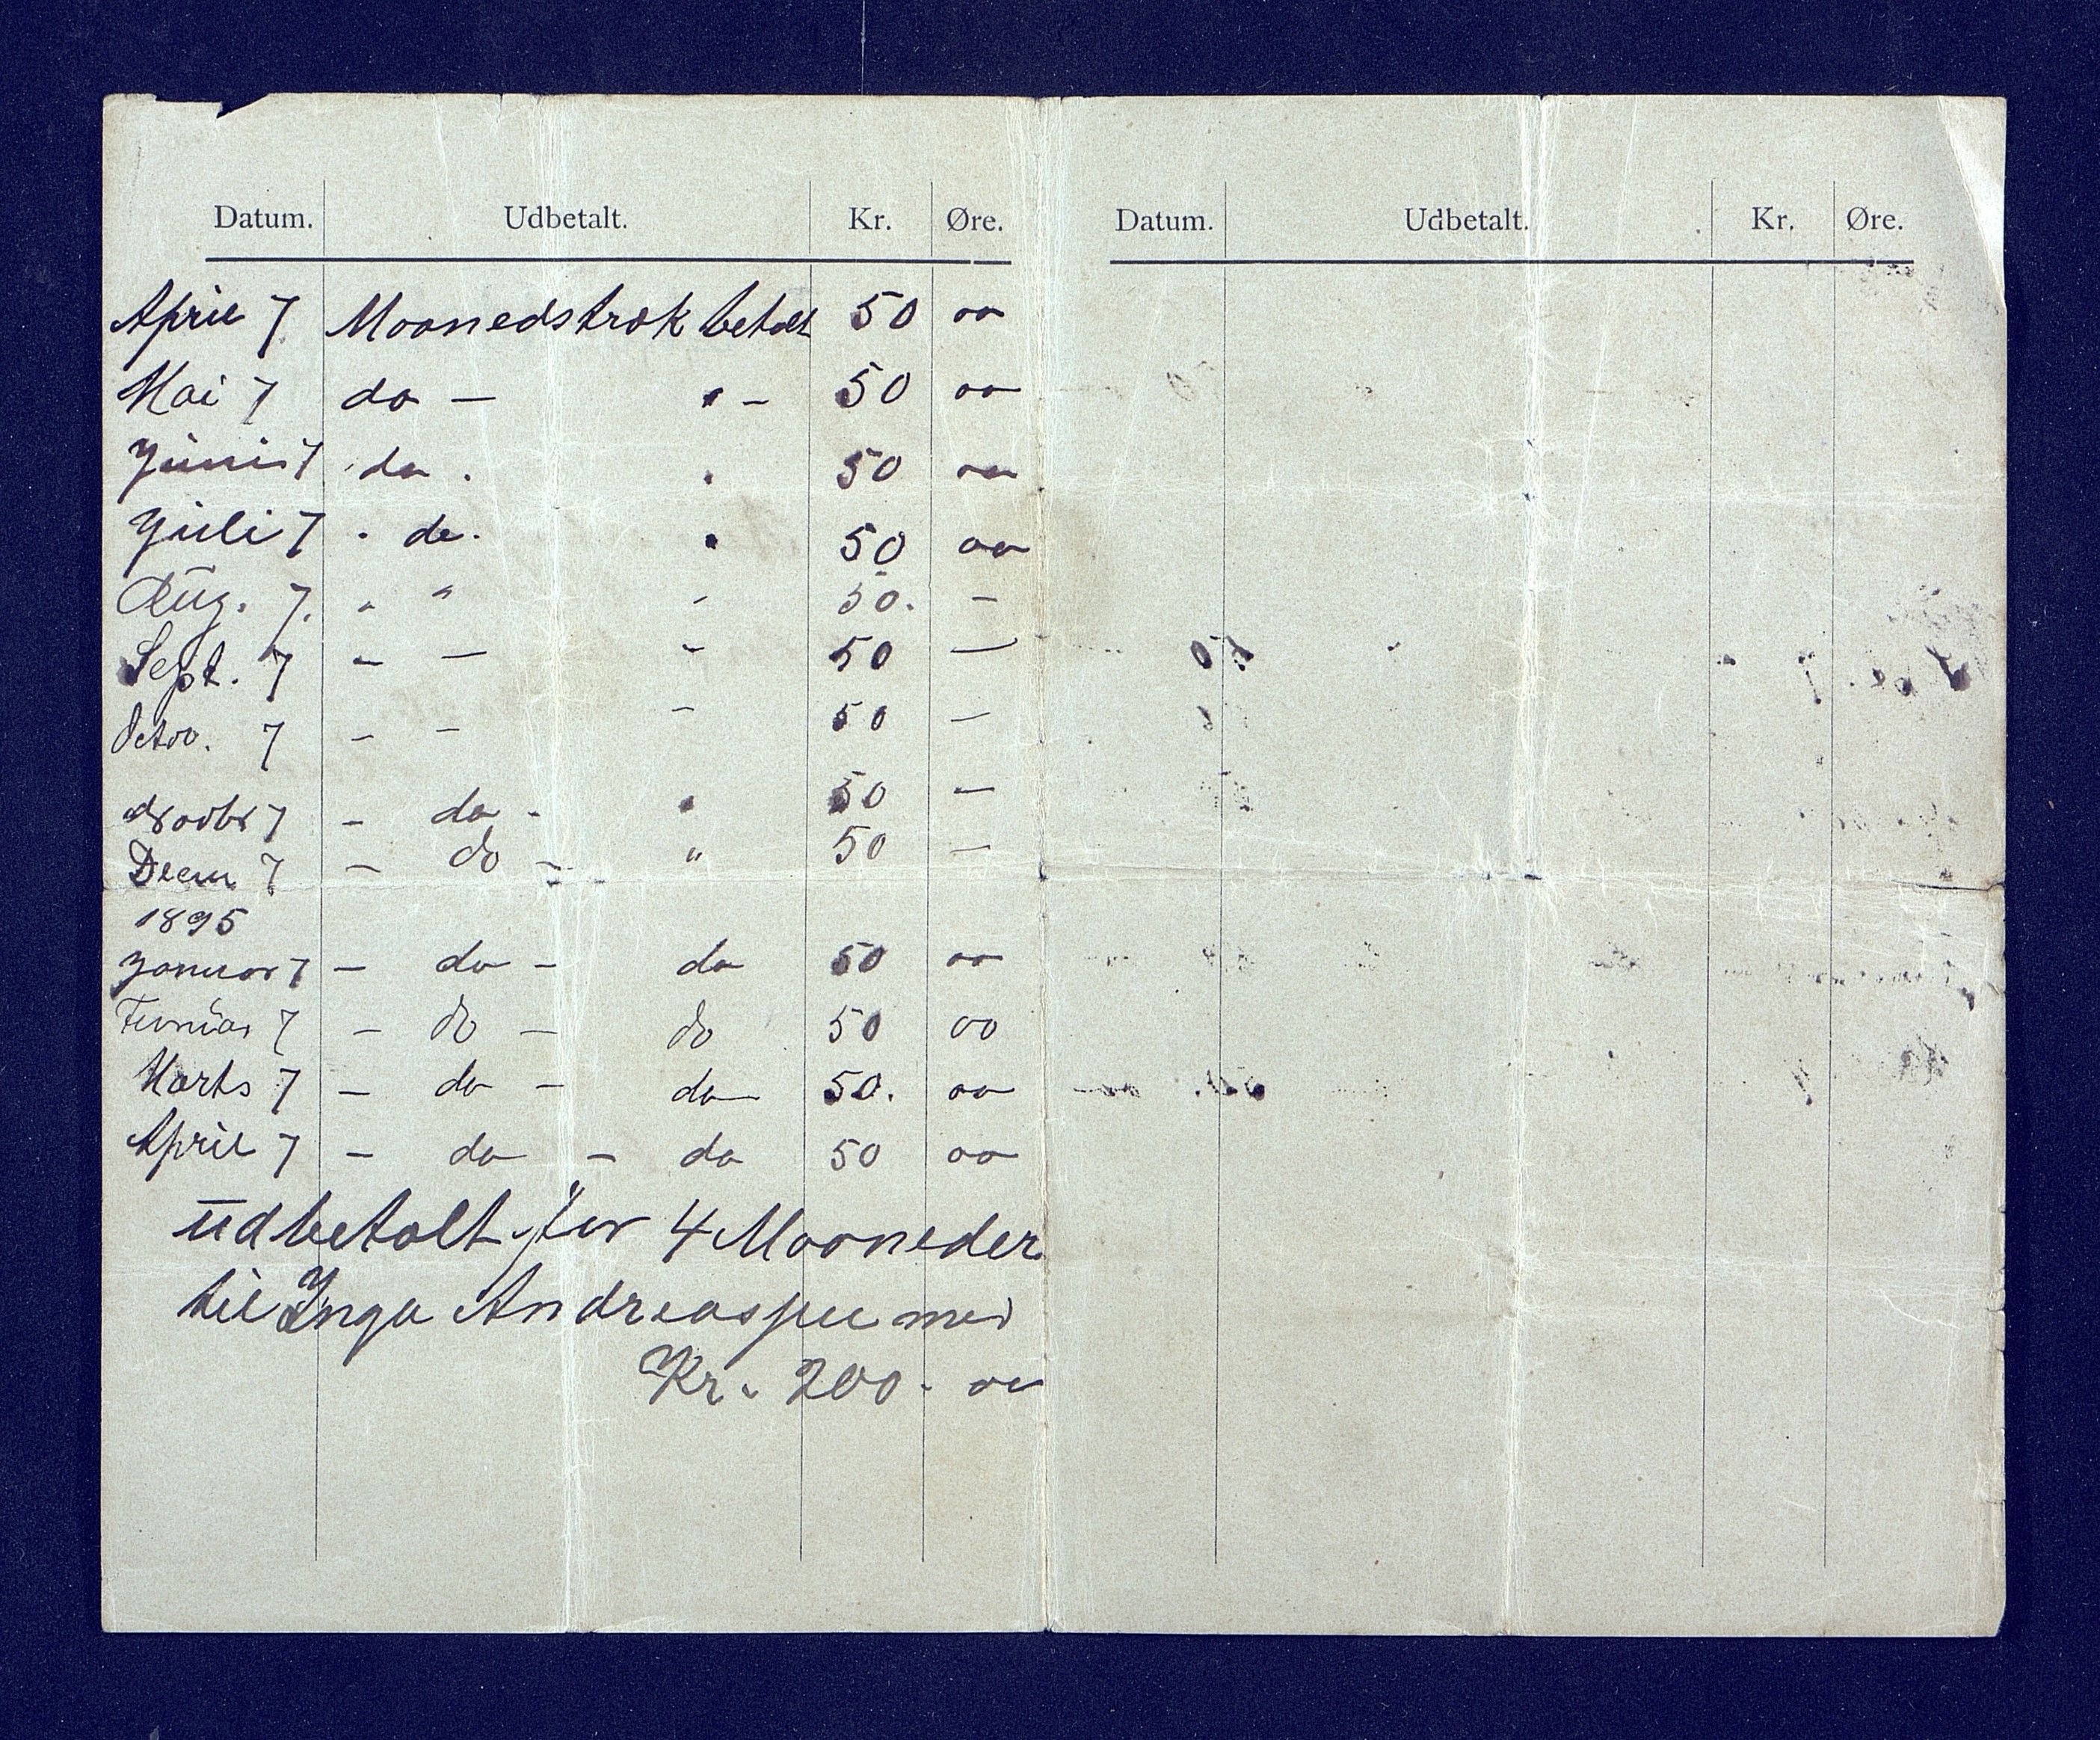 Datum. Udbetalt. Kr. Øre.
April 7 Maanedstræk betalt 50 00
Mai 7 do — " — 50 00
Juni 7 do . " 50 00
Juli 7 . do . " 50 00
Aug. 7. " " " 50. —
Sept. 7 — — — 50 —
Octor. 7 — — — 50 —
Novbr 7 — do - " 50 —
Decm 7 — do — " 50 —
1895
Januar 7 — do — do 50 00
Februar 7 — do — do 50 00
Marts 7 — do — do 50. 00
April 7 — do — do 50 00
Udbetalt for 4 Maaneder
til Inga Andreassen med
Kr. 200. 00
Datum. Udbetalt. Kr. Øre.